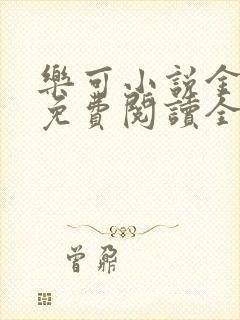 樂可小說全
免費閱讀全
曾鼐